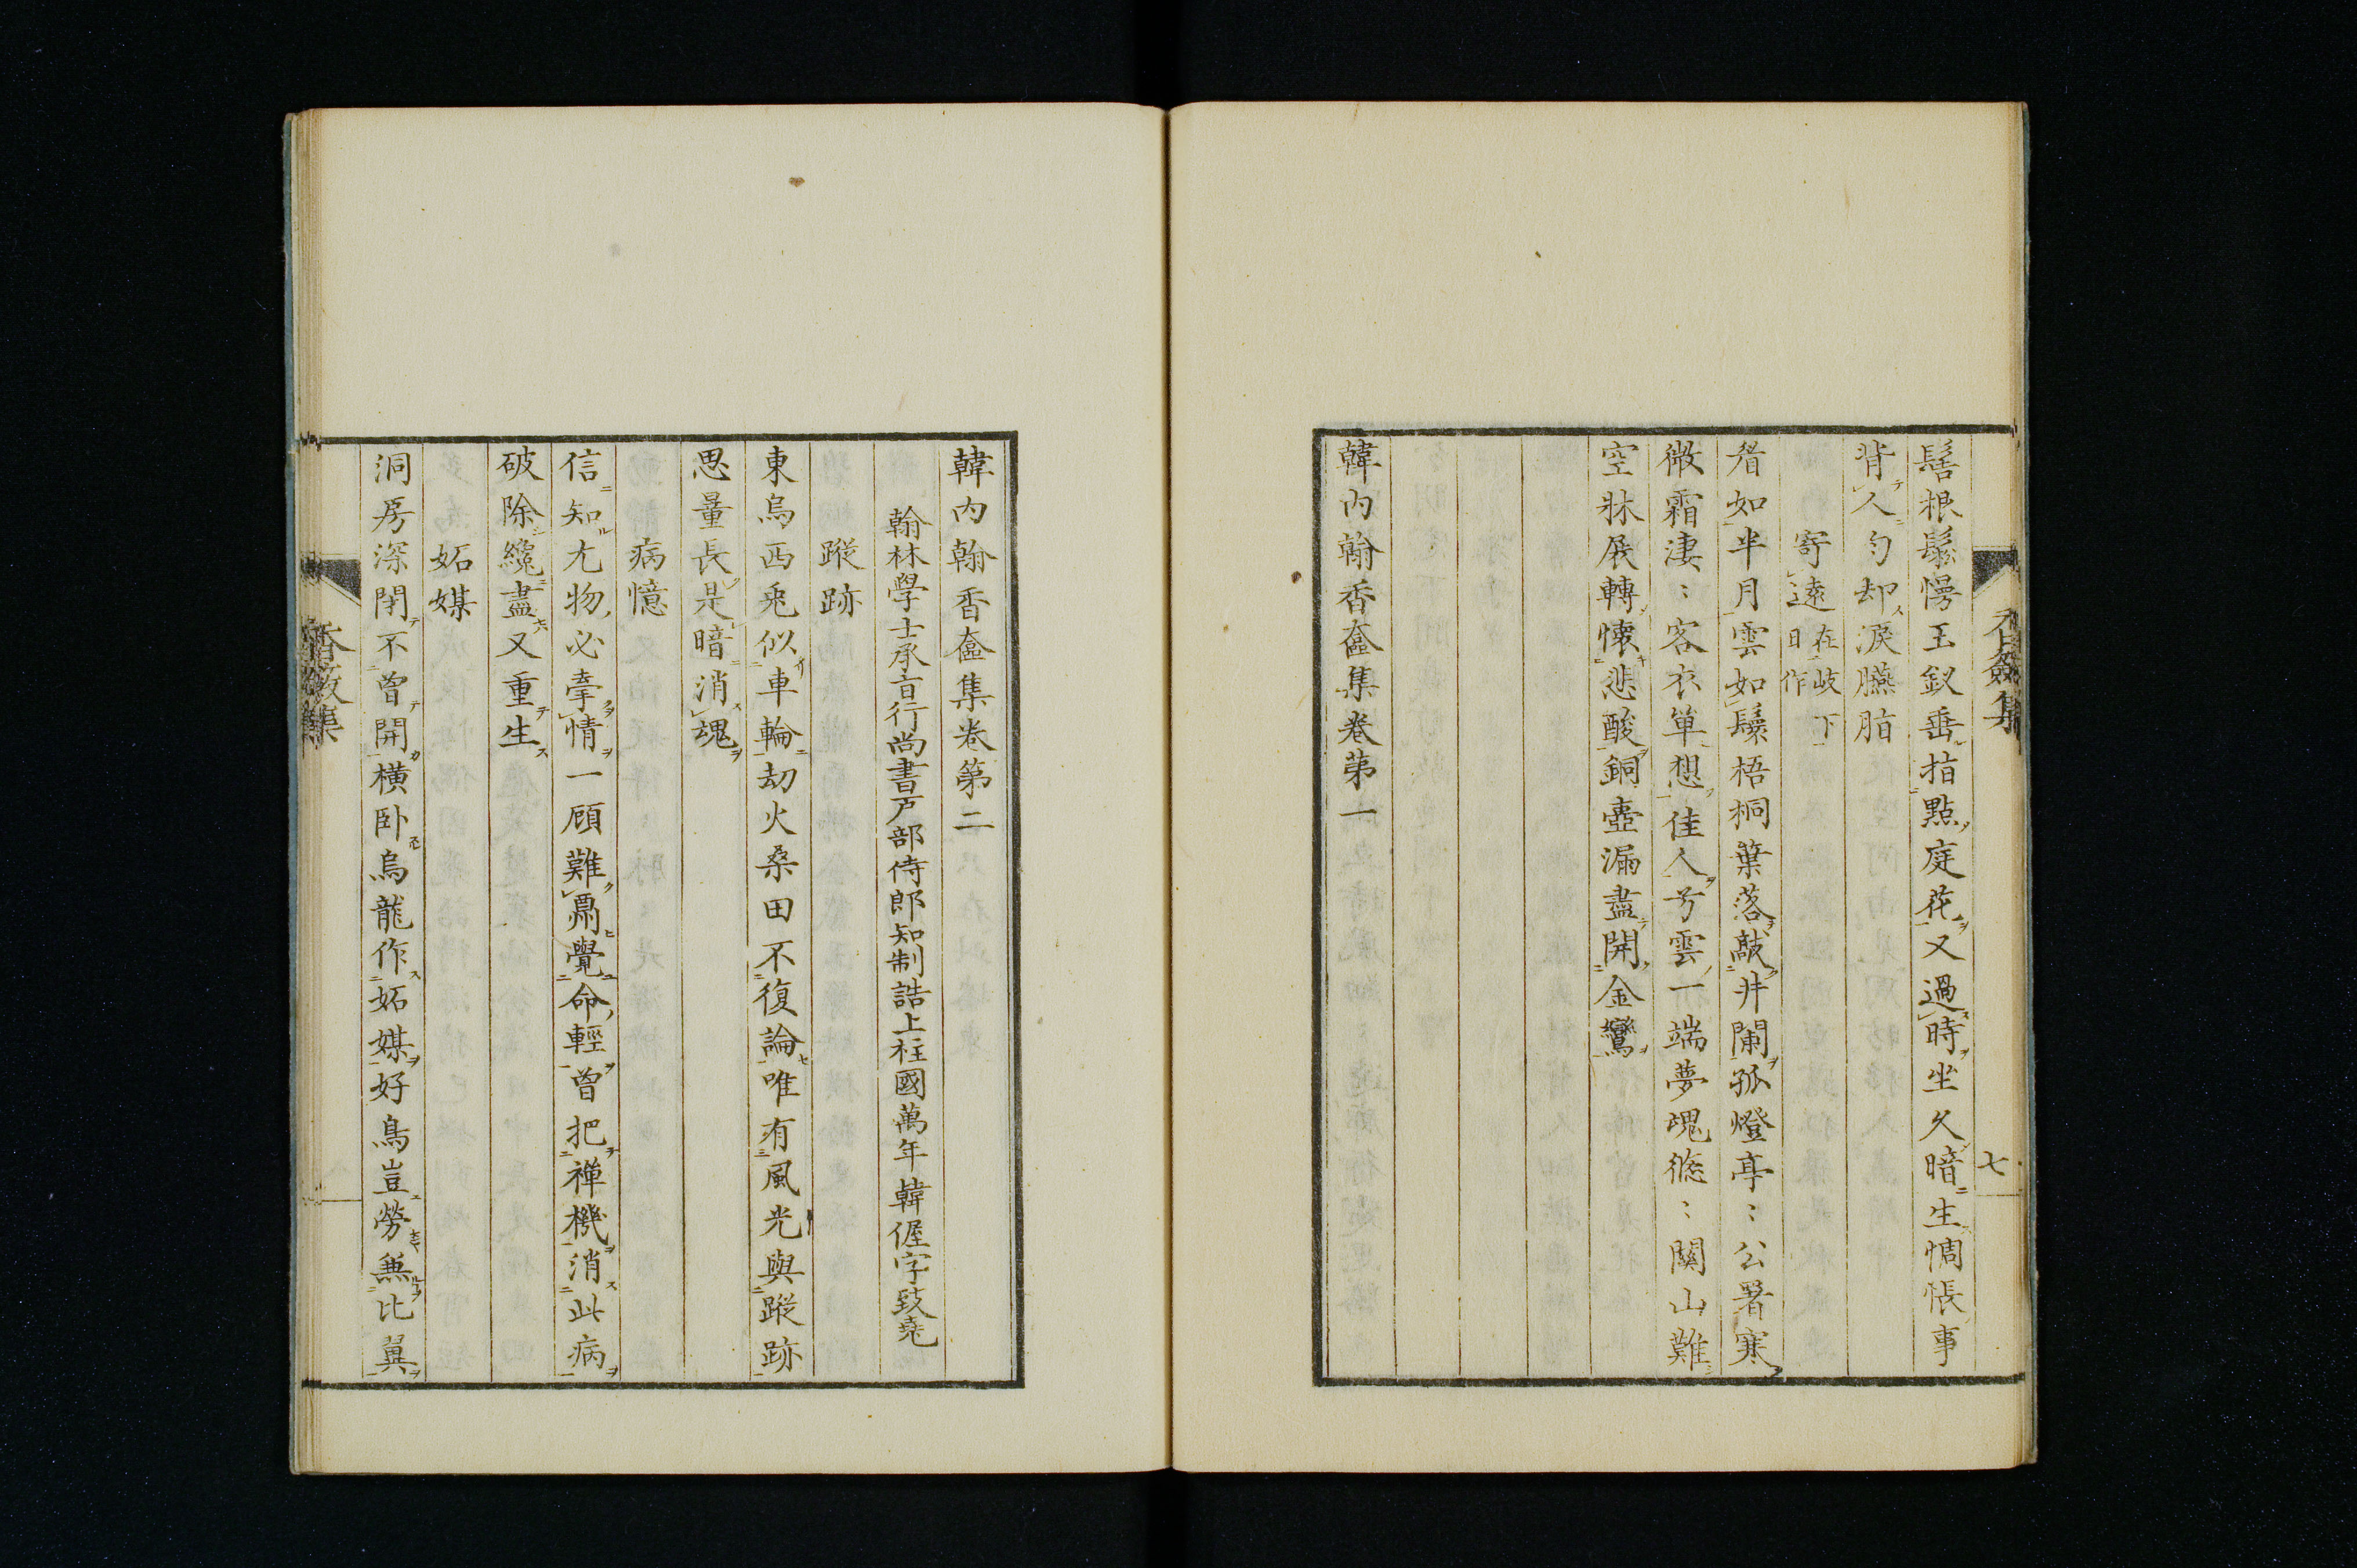 香奩集
七
髻根鬆慢玉釵垂指點庭花又過時坐久暗生惆悵事
背人匀却淚臙脂
寄遠在岐下日作
眉如半月雲如鬟梧桐葉落敲井闌孤燈亭〻公署寒
微霜淒〻客衣單想佳人兮雲一端夢魂悠〻關山難
空牀展轉懷悲酸銅壺漏盡聞金鸞
韓内翰香奩集卷第一
韓内翰香奩集卷第二
翰林學士承旨行尚書戸部侍郎知制誥上柱國萬年韓偓字致堯
蹤跡
東烏西兎似車輪劫火桑田不復論唯有風光與蹤跡
思量長是暗消魂
病憶
信知尤物必牽情一顧難酬覺命輕曾把禪機消此病
破除纔盡又重生
妬媒
洞房深閉不曾開横卧烏龍作妬媒好鳥豈勞兼比翼
香奩集